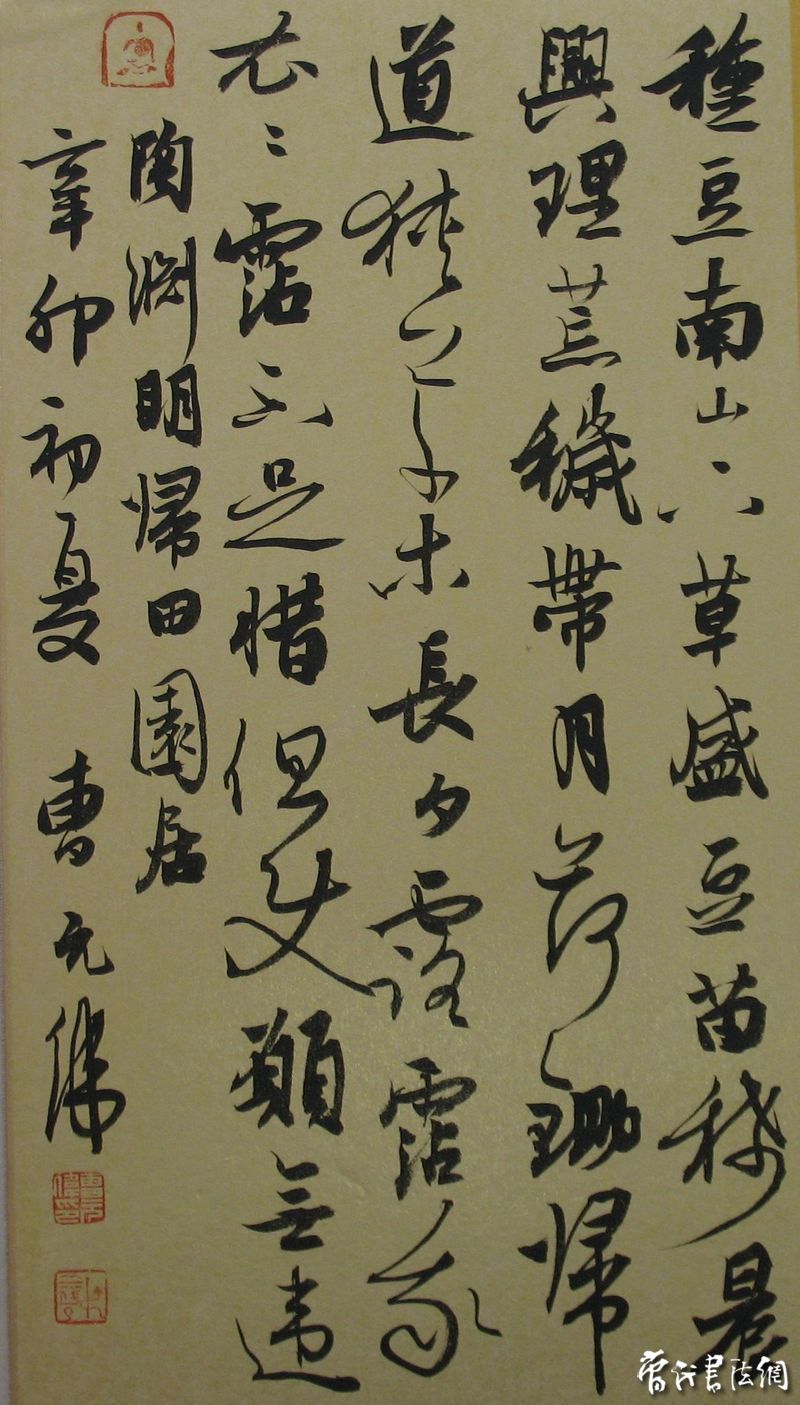 種豆南山下草盛豆苗稀晨
興理荒穢帶月荷鋤歸
道狹草木長夕露霑我
衣〻霑不足惜但使願無違
陶淵明歸田園居
辛卯初夏 曹元偉